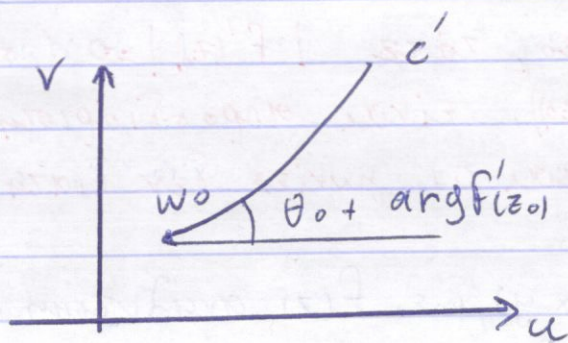 v
c'
w₀
θ₀ + arg f'(z₀)
u